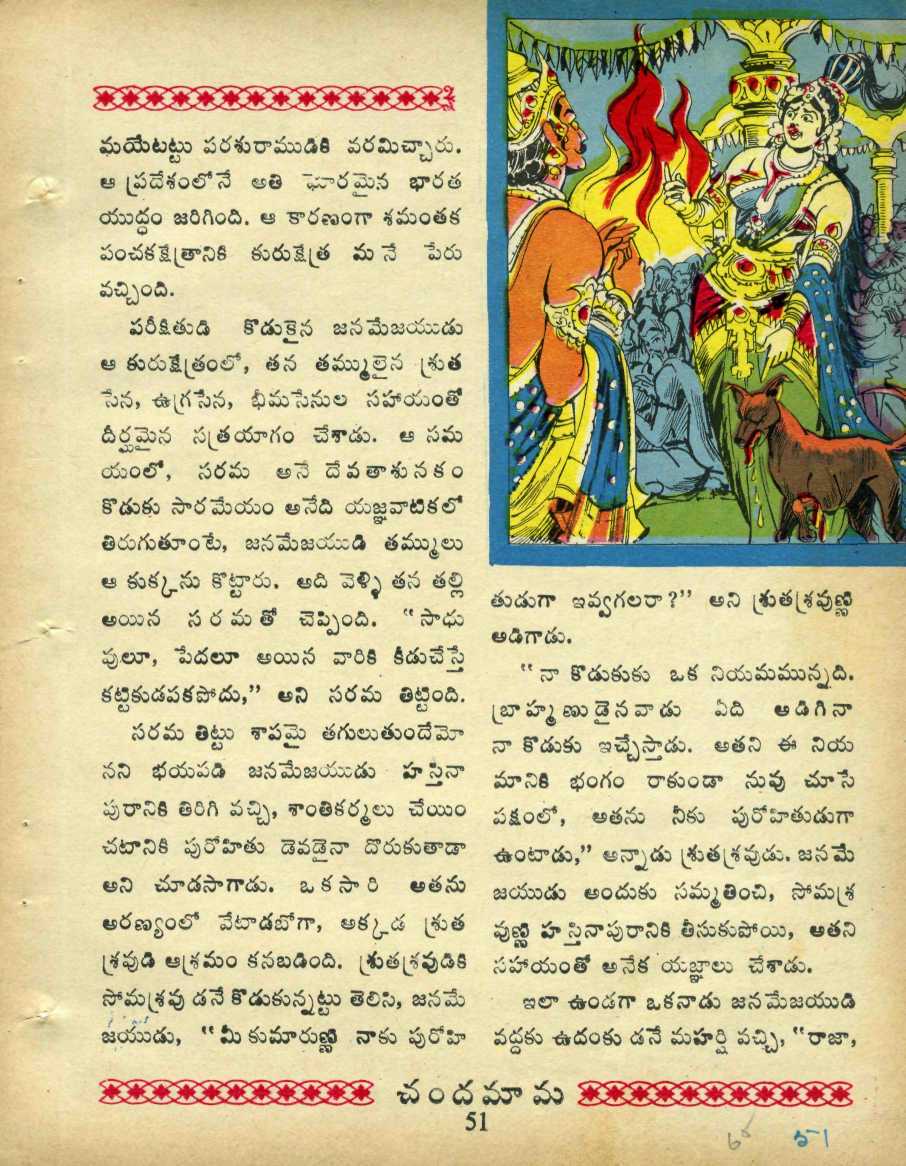 మయేటట్టు పరశురాముడికి వరమిచ్చారు.
ఆ ప్రదేశంలోనే అతి ఘోరమైన భారత
యుద్ధం జరిగింది. ఆ కారణంగా శమంతక
పంచకక్షేత్రానికి కురుక్షేత్ర మనే పేరు
వచ్చింది.
పరీక్షితుడి కొడుకైన జనమేజయుడు
ఆ కురుక్షేత్రంలో, తన తమ్ములైన శ్రుత
సేన, ఉగ్రసేన, భీమసేనుల సహాయంతో
దీర్ఘమైన సత్రయాగం చేశాడు. ఆ సమ
యంలో, సరమ అనే దేవతాశునకం
కొడుకు సారమేయం అనేది యజ్ఞవాటికలో
తిరుగుతూంటే, జనమేజయుడి తమ్ములు
ఆ కుక్కను కొట్టారు. అది వెళ్ళి తన తల్లి
అయిన సరమతో చెప్పింది. “సాధు
వులూ, పేదలూ అయిన వారికి కీడుచేస్తే
కట్టికుడపకపోదు,” అని సరమ తిట్టింది.
సరమ తిట్టు శాపమై తగులుతుందేమో
నని భయపడి జనమేజయుడు హస్తినా
పురానికి తిరిగి వచ్చి, శాంతికర్మలు చేయిం
చటానికి పురోహితు డెవడైనా దొరుకుతాడా
అని చూడసాగాడు. ఒకసారి అతను
అరణ్యంలో వేటాడబోగా, అక్కడ శ్రుత
శ్రవుడి ఆశ్రమం కనబడింది. శ్రుతశ్రవుడికి
సోమశ్రవు డనే కొడుకున్నట్టు తెలిసి, జనమే
జయుడు, “మీ కుమారుణ్ణి నాకు పురోహి
తుడుగా ఇవ్వగలరా?” అని శ్రుతశ్రవుణ్ణి
అడిగాడు.
“నా కొడుకుకు ఒక నియమమున్నది.
బ్రాహ్మణుడైనవాడు ఏది అడిగినా
నా కొడుకు ఇచ్చేస్తాడు. అతని ఈ నియ
మానికి భంగం రాకుండా నువు చూసే
పక్షంలో, అతను నీకు పురోహితుడుగా
ఉంటాడు,” అన్నాడు శ్రుతశ్రవుడు. జనమే
జయుడు అందుకు సమ్మతించి, సోమశ్ర
వుణ్ణి హస్తినాపురానికి తీసుకుపోయి, అతని
సహాయంతో అనేక యజ్ఞాలు చేశాడు.
ఇలా ఉండగా ఒకనాడు జనమేజయుడి
వద్దకు ఉదంకు డనే మహర్షి వచ్చి, “రాజా,
చందమామ
51
51